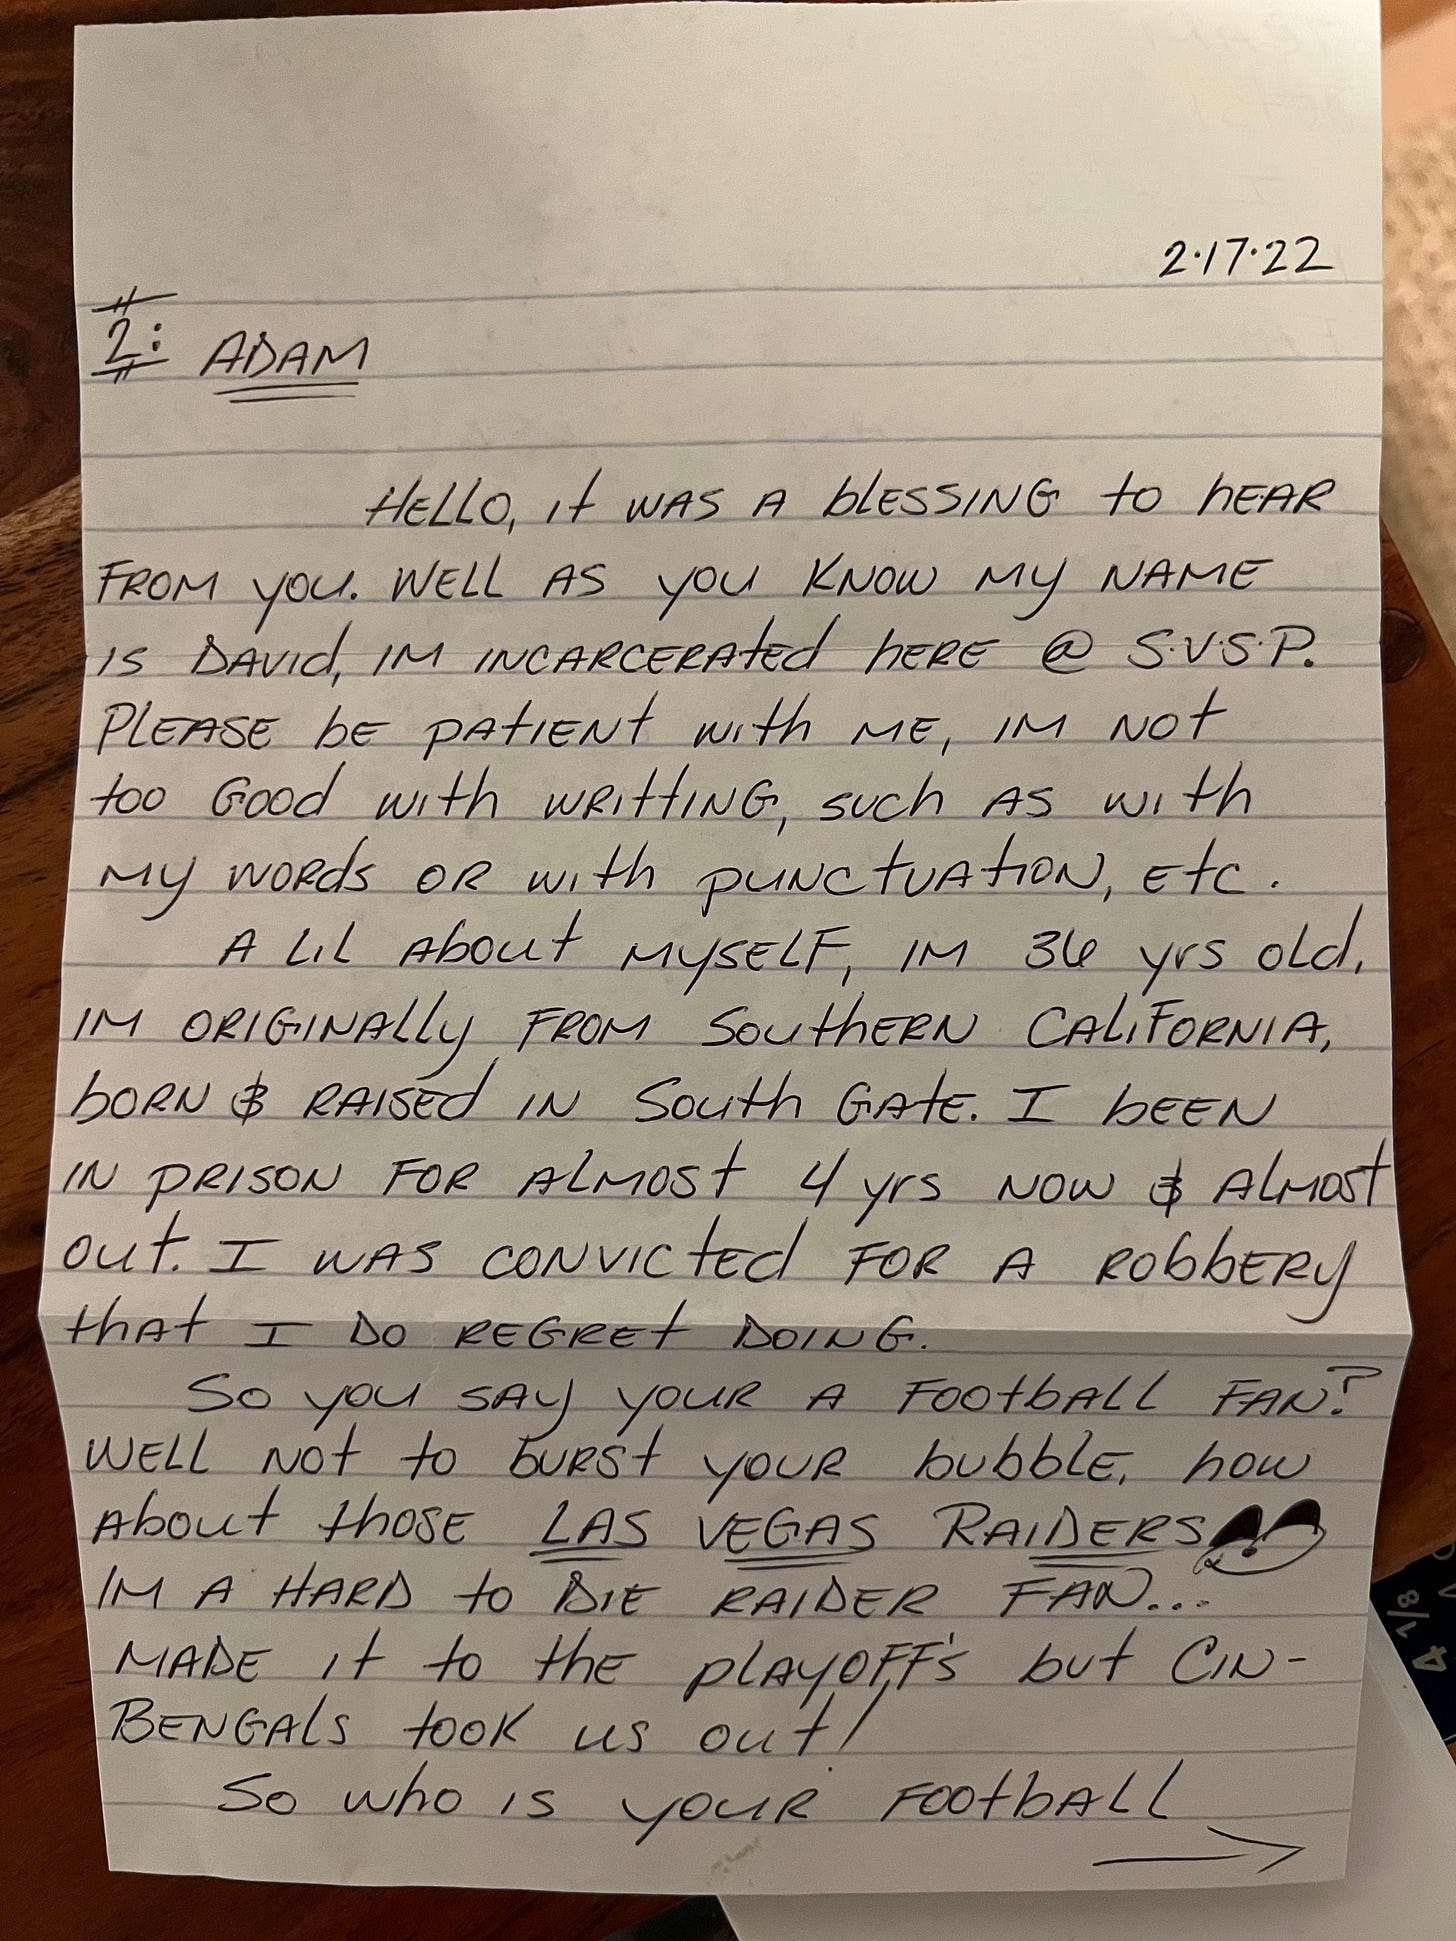 2·17·22
2: ADAM
HELLO, it WAS A blESSING to hEAR
FROM you. WELL AS you KNOW MY NAME
IS DAVId, IM INCARCERAtEd hERE @ S.V.S.P.
PLEASE bE PAtIENt with ME, IM NOt
too Good with WRIttING, such AS with
MY WORds OR with PUNCtUAtION, Etc.
A LiL About MYSELF, IM 36 yrs old,
IM ORIGINALLy FROM SouthERN CALIFORNIA,
bORN & RAISEd IN South GAtE. I bEEN
IN PRISON FOR ALMOSt 4 yrs NOW & ALMOSt
out. I WAS CONVICtEd FOR A RobbERY
thAt I DO REGREt DOING.
So you SAY youR A FootbALL FAN?
WELL NOt to buRSt youR bubblE, how
About thoSE LAS VEGAS RAIDERS
IM A HARD to DIE RAIDER FAN...
MADE it to thE PLAYOFF'S but CIN-
BENGALS took us out!
So who IS youR FootbALL